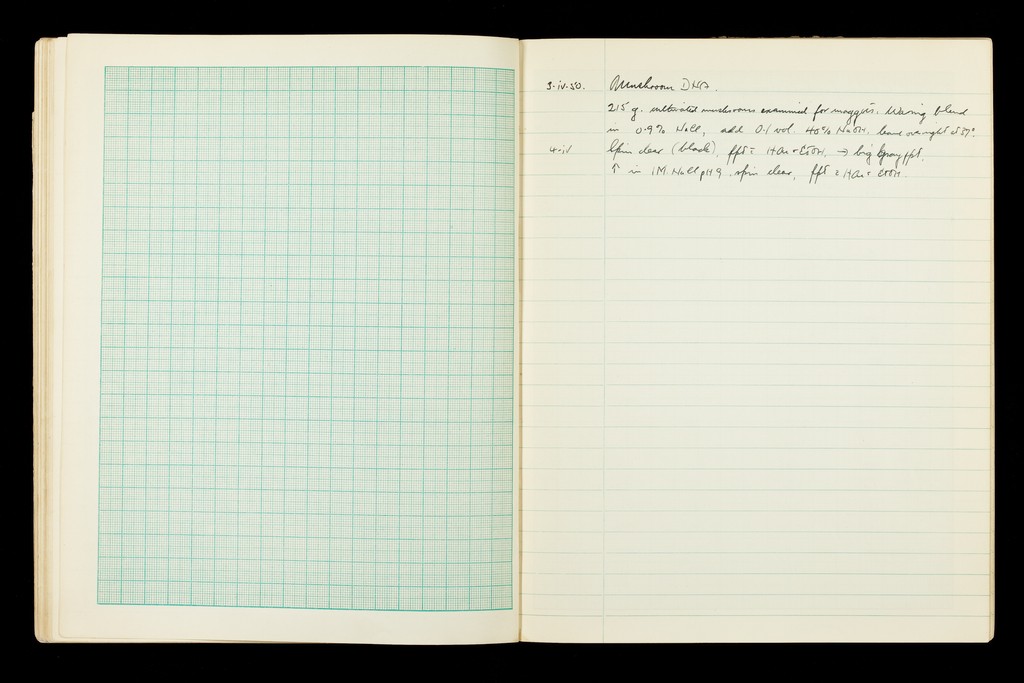 3·iv·50. Mushroom DNA.
215 g. cultivated mushrooms examined for maggots. Waring blend
in 0·9% NaCl, add 0.1 vol. 40% NaOH, leave overnight at 37°.
4·iv Spin clear (black), ppt c̄ HAc + EtOH, → big gray ppt.
↑ in 1M. NaCl pH 9. spin clear, ppt c̄ HAc + EtOH.